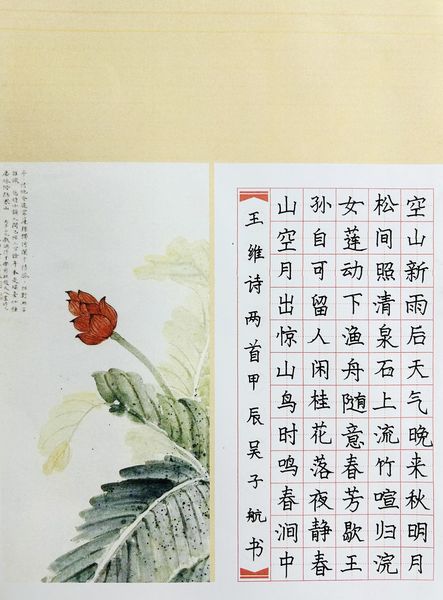 空山新雨后天气晚来秋明月
松间照清泉石上流竹喧归浣
女莲动下渔舟随意春芳歇王
孙自可留人闲桂花落夜静春
山空月出惊山鸟时鸣春涧中
王维诗两首甲辰吴子航书